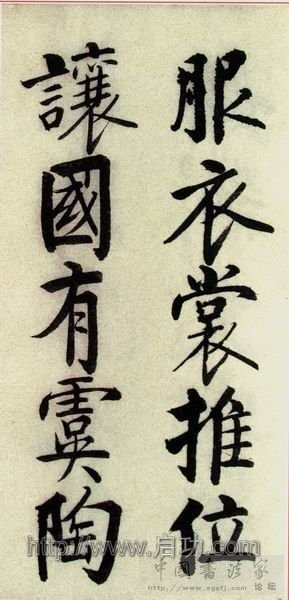 服衣裳推位
讓國有虞陶
http://www.启功.com
中国书法家论坛
www.zgsfj.com